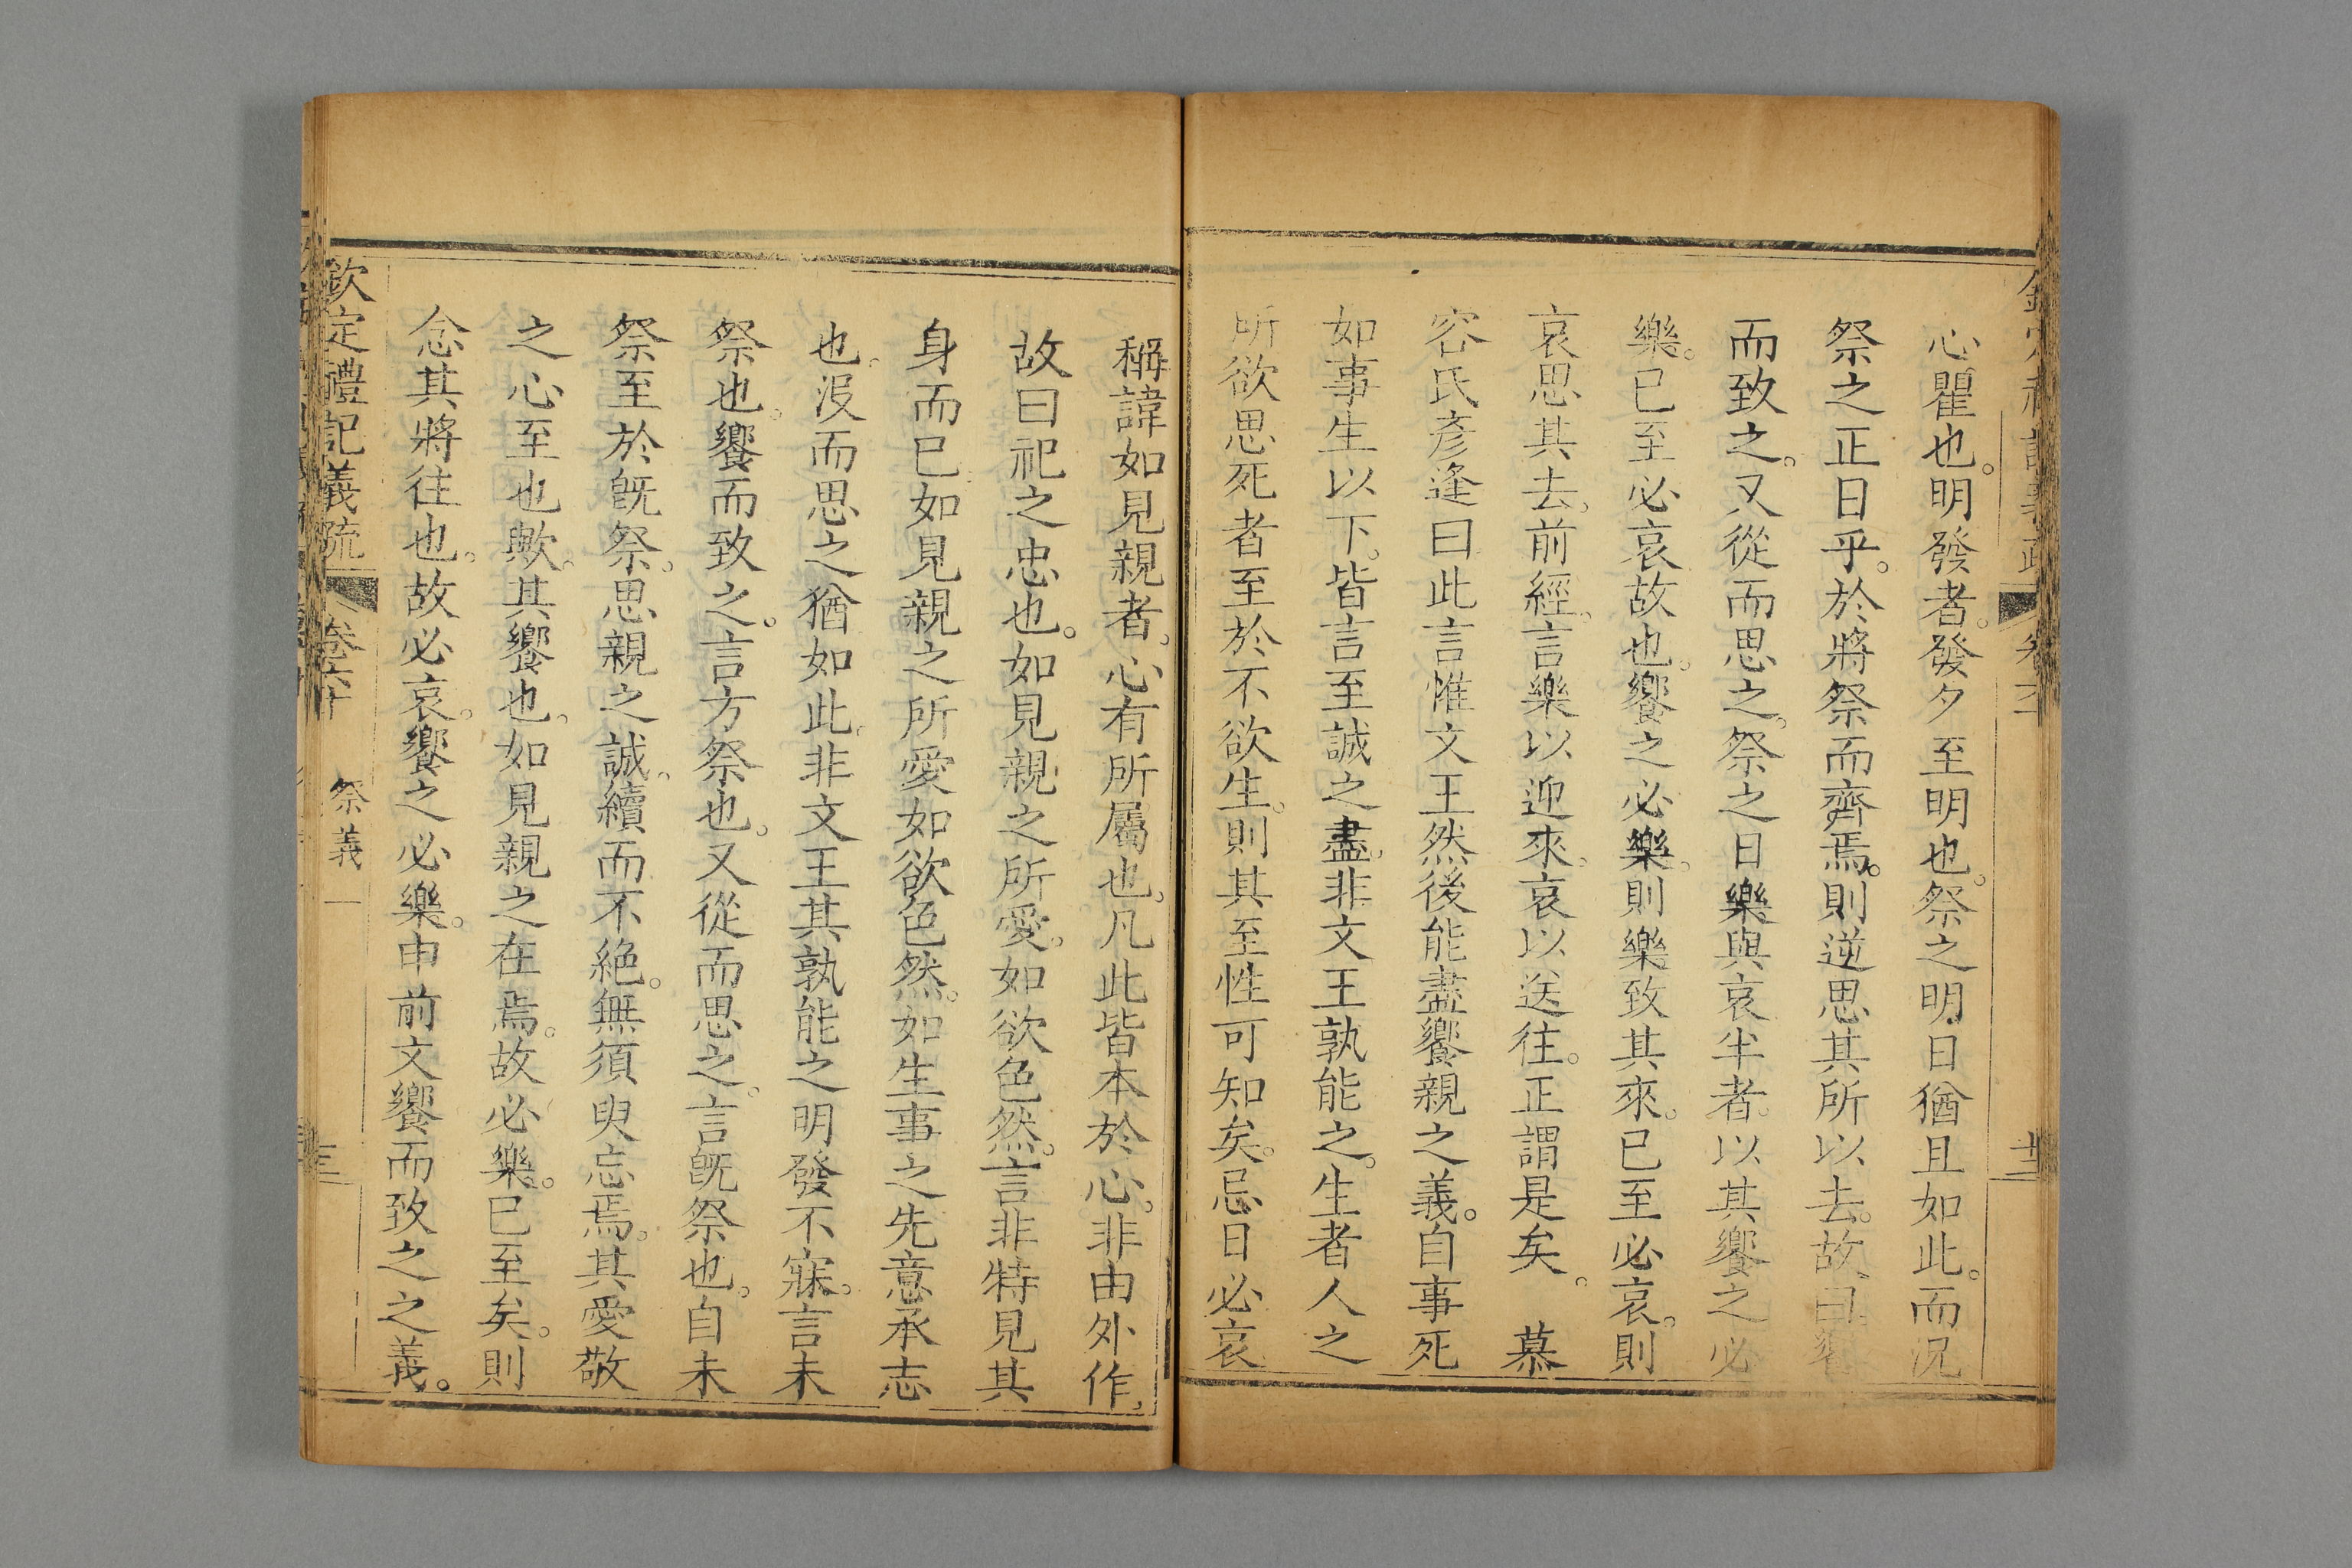 心瞿也。明發者。發夕至明也。祭之明日猶且如此。而況
祭之正日乎。於將祭而齊焉。則逆思其所以去。故曰。饗
而致之。又從而思之。祭之日樂與哀半者。以其饗之必
樂。已至必哀故也。饗之必樂。則樂致其來。已至必哀。則
哀思其去。前經。言樂以迎來。哀以送往。正謂是矣。 慕
容氏彥逢曰此言惟文王然後能盡饗親之義。自事死
如事生以下。皆言至誠之盡。非文王孰能之。生者人之
所欲思死者至於不欲生。則其至性可知矣。忌日必哀
稱諱如見親者。心有所屬也。凡此皆本於心。非由外作。
故曰祀之忠也。如見親之所愛。如欲色然。言非特見其
身而已。如見親之所愛如欲色然。如生事之先意承志
也。沒而思之猶如此。非文王其孰能之明發不寐。言未
祭也。饗而致之。言方祭也。又從而思之。言旣祭也。自未
祭至於旣祭。思親之誠。續而不絕。無須臾忘焉。其愛敬
之心至也歟。其饗也。如見親之在焉。故必樂。已至矣。則
念其將往也。故必哀。饗之必樂。申前文饗而致之之義。
欽定禮記義疏 卷六十 祭義一